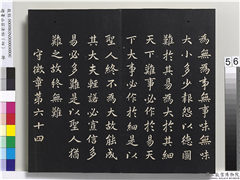 為無為事無事味無味
大小多少報怨以德圖
難於其易為大於其細
天下難事必作於易天
下大事必作於細是以
聖人終不為大故能成
其大夫輕諾必寡信多
易必多難是以聖人猶
難之故終無難
守微章第六十四
56